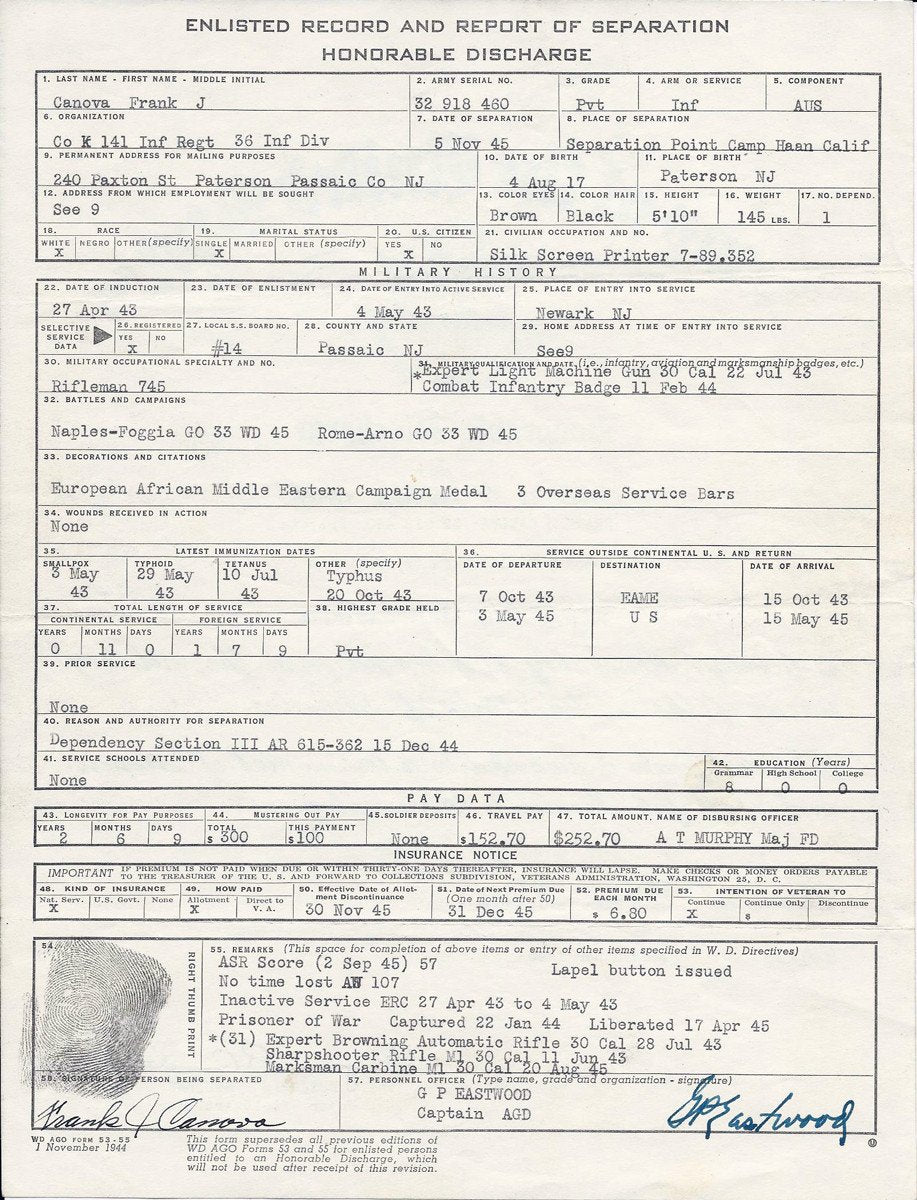 ENLISTED RECORD AND REPORT OF SEPARATION
HONORABLE DISCHARGE
1. LAST NAME - FIRST NAME - MIDDLE INITIAL
Canova Frank J
2. ARMY SERIAL NO.
32 918 460
3. GRADE
Pvt
4. ARM OR SERVICE
Inf
5. COMPONENT
AUS
6. ORGANIZATION
Co K 141 Inf Regt 36 Inf Div
7. DATE OF SEPARATION
5 Nov 45
8. PLACE OF SEPARATION
Separation Point Camp Haan Calif
9. PERMANENT ADDRESS FOR MAILING PURPOSES
240 Paxton St Paterson Passaic Co NJ
10. DATE OF BIRTH
4 Aug 17
11. PLACE OF BIRTH
Paterson NJ
12. ADDRESS FROM WHICH EMPLOYMENT WILL BE SOUGHT
See 9
13. COLOR EYES
Brown
14. COLOR HAIR
Black
15. HEIGHT
5'10"
16. WEIGHT
145 LBS.
17. NO. DEPEND.
1
18. RACE
WHITE NEGRO OTHER (specify)
X
19. MARITAL STATUS
SINGLE MARRIED OTHER (specify)
X
20. U.S. CITIZEN
YES NO
X
21. CIVILIAN OCCUPATION AND NO.
Silk Screen Printer 7-89.352
MILITARY HISTORY
22. DATE OF INDUCTION
27 Apr 43
23. DATE OF ENLISTMENT
24. DATE OF ENTRY INTO ACTIVE SERVICE
4 May 43
25. PLACE OF ENTRY INTO SERVICE
Newark NJ
SELECTIVE SERVICE DATA
26. REGISTERED
YES NO
X
27. LOCAL S.S. BOARD NO.
#14
28. COUNTY AND STATE
Passaic NJ
29. HOME ADDRESS AT TIME OF ENTRY INTO SERVICE
See9
30. MILITARY OCCUPATIONAL SPECIALTY AND NO.
Rifleman 745
31. MILITARY QUALIFICATION AND DATE (i.e., infantry, aviation and marksmanship badges, etc.)
*Expert Light Machine Gun 30 Cal 22 Jul 43
Combat Infantry Badge 11 Feb 44
32. BATTLES AND CAMPAIGNS
Naples-Foggia GO 33 WD 45 Rome-Arno GO 33 WD 45
33. DECORATIONS AND CITATIONS
European African Middle Eastern Campaign Medal 3 Overseas Service Bars
34. WOUNDS RECEIVED IN ACTION
None
35. LATEST IMMUNIZATION DATES
SMALLPOX TYPHOID TETANUS OTHER (specify)
3 May 29 May 10 Jul Typhus
43 43 43 20 Oct 43
36. SERVICE OUTSIDE CONTINENTAL U. S. AND RETURN
DATE OF DEPARTURE DESTINATION DATE OF ARRIVAL
7 Oct 43 EAME 15 Oct 43
3 May 45 U S 15 May 45
37. TOTAL LENGTH OF SERVICE
CONTINENTAL SERVICE FOREIGN SERVICE
YEARS MONTHS DAYS YEARS MONTHS DAYS
0 11 0 1 7 9
38. HIGHEST GRADE HELD
Pvt
39. PRIOR SERVICE
None
40. REASON AND AUTHORITY FOR SEPARATION
Dependency Section III AR 615-362 15 Dec 44
41. SERVICE SCHOOLS ATTENDED
None
42. EDUCATION (Years)
Grammar High School College
8 0 0
PAY DATA
43. LONGEVITY FOR PAY PURPOSES
YEARS MONTHS DAYS
2 6 9
44. MUSTERING OUT PAY
TOTAL THIS PAYMENT
$ 300 $100
45. SOLDIER DEPOSITS
None
46. TRAVEL PAY
$152.70
47. TOTAL AMOUNT, NAME OF DISBURSING OFFICER
$252.70 A T MURPHY Maj FD
INSURANCE NOTICE
IMPORTANT IF PREMIUM IS NOT PAID WHEN DUE OR WITHIN THIRTY-ONE DAYS THEREAFTER, INSURANCE WILL LAPSE. MAKE CHECKS OR MONEY ORDERS PAYABLE
TO THE TREASURER OF THE U. S. AND FORWARD TO COLLECTIONS SUBDIVISION, VETERANS ADMINISTRATION, WASHINGTON 25, D. C.
48. KIND OF INSURANCE
Nat. Serv. U.S. Govt. None
X
49. HOW PAID
Allotment Direct to V. A.
X
50. Effective Date of Allotment Discontinuance
30 Nov 45
51. Date of Next Premium Due (One month after 50)
31 Dec 45
52. PREMIUM DUE EACH MONTH
$ 6.80
53. INTENTION OF VETERAN TO
Continue Continue Only Discontinue
X $
54.
RIGHT THUMB PRINT
55. REMARKS (This space for completion of above items or entry of other items specified in W. D. Directives)
ASR Score (2 Sep 45) 57 Lapel button issued
No time lost AW 107
Inactive Service ERC 27 Apr 43 to 4 May 43
Prisoner of War Captured 22 Jan 44 Liberated 17 Apr 45
*(31) Expert Browning Automatic Rifle 30 Cal 28 Jul 43
Sharpshooter Rifle M1 30 Cal 11 Jun 43
Marksman Carbine M1 30 Cal 20 Aug 45
56. SIGNATURE OF PERSON BEING SEPARATED
Frank J Canova
57. PERSONNEL OFFICER (Type name, grade and organization - signature)
G P EASTWOOD
Captain AGD
GPEastwood
WD AGO FORM 53-55
1 November 1944
This form supersedes all previous editions of
WD AGO Forms 53 and 55 for enlisted persons
entitled to an Honorable Discharge, which
will not be used after receipt of this revision.